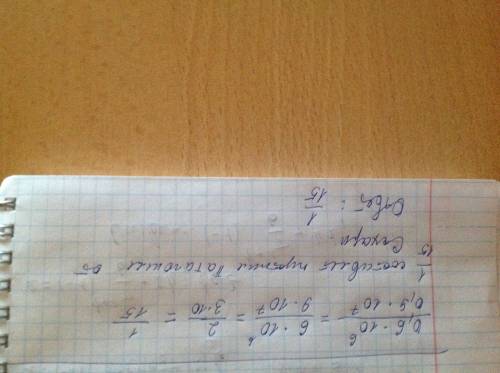 0,6·10⁶ / 0,9·10⁷ = 6·10⁶ / 9·10⁷ = 2 / 3·10 = 1/15
1/15 составляет пустыня от
Сахары
Ответ: 1/15